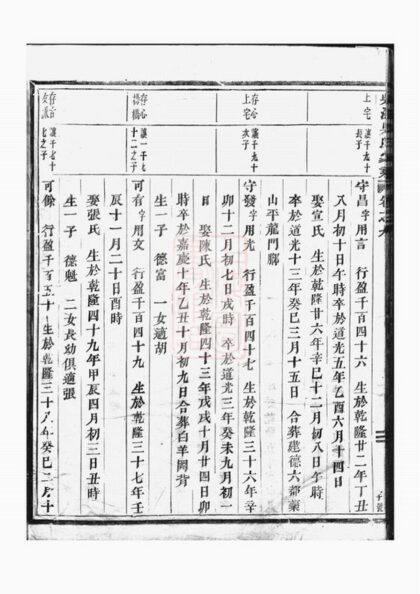 上宅
讓千九十
長子
守昌字用言 行盈千百四十六 生於乾隆廿一年丁丑
八月初十日午時卒於道光五年乙酉六月十四日
娶宣氏 生於乾隆廿六年辛巳十二月初八日午時
卒於道光十三年癸巳三月十五日 合葬建德六都葉
山平龍門腳
存心
上宅
讓千九十
次子
守發字用光 行盈千百四十七 生於乾隆三十六年辛
卯十二月初七日戌時 卒於道光三年癸未九月初一
日 娶陳氏 生於乾隆四十三年戊戌十月廿四日卯
時卒於嘉慶十年乙丑十月初九日合葬白羊岡背
生一子 德富 一女適胡
存心
楊橋
讓一千七
十二之子
可有字用文 行盈千百四十九 生於乾隆三十七年壬
辰十一月二十日酉時
娶張氏 生於乾隆四十九年甲辰四月初三日丑時
生一子 德魁 二女長幼俱適張
讓千七十
七之子
可餘 行盈千百五十 生於乾隆三十八年癸巳二月十